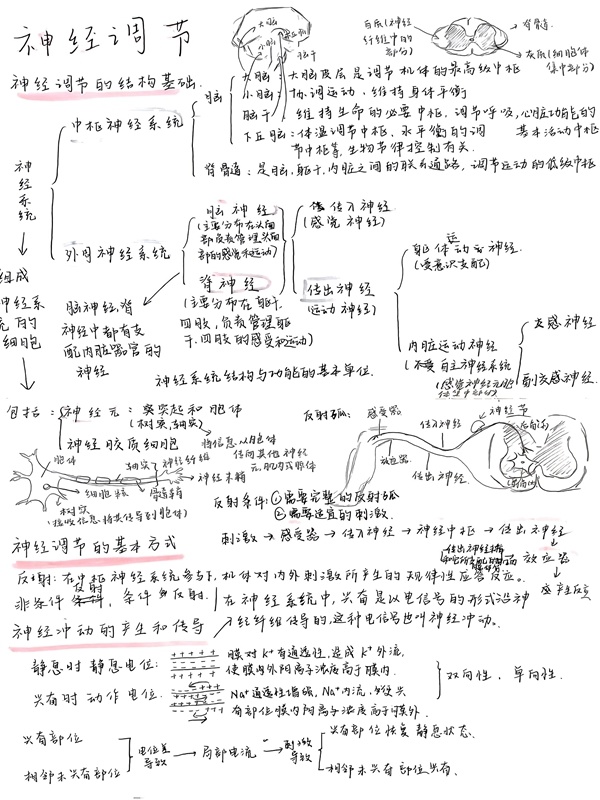 神经调节
大脑
小脑
脑干
白质(神经
纤维集中的
部分)
脊髓
灰质(细胞体
集中部分)
神经调节的结构基础.
神经系统
中枢神经系统
脑
大脑:大脑皮层是调节机体的最高级中枢
小脑:协调运动、维持身体平衡
脑干:维持生命的必要中枢,调节呼吸,心脏功能的
基本活动中枢
下丘脑:体温调节中枢、水平衡的调
节中枢等,生物节律控制有关.
脊髓:是脑,躯干,内脏之间的联系通路,调节运动的低级中枢
外周神经系统
脑神经
(主要分布在头面
部负责管理头面
部的感觉和运动)
脊神经
(主要分布在躯干,
四肢,负责管理躯
干.四肢的感受和运动)
传入神经
(感觉神经)
传出神经
(运动神经)
躯体运动神经.
(受意识支配)
内脏运动神经
(不受自主神经系统
交感神经
副交感神经.
脑神经.脊
神经中都有支
配内脏器官的
神经
组成
神经系
统的
细胞
神经系统结构与功能的基本单位.
包括:
神经元:突起和胞体
(树突,轴突)
神经胶质细胞
将信息从胞体
传向其他神经
元.肌肉或腺体
胞体
轴突
神经纤维
神经末梢
细胞核
髓鞘
树突
(接收信息将其传导到胞体)
反射弧:
感受器
传入神经
神经节
效应器
传出神经
反射条件:①需要完整的反射弧
②需要适宜的刺激.
刺激→感受器→传入神经→神经中枢→传出神经
效应器
产生反应
神经调节的基本方式
反射:在中枢神经系统参与下,机体对内外刺激所产生的规律性应答反应。
非条件反射,条件反射.
在神经系统中,兴奋是以电信号的形式沿神
经纤维传导的,这种电信号也叫神经冲动。
神经冲动的产生和传导
静息时 静息电位:
+++++
-----
膜对K⁺有通透性,造成K⁺外流,
使膜内外阳离子浓度高于膜内.
兴奋时 动作电位.
Na⁺通透性增强,Na⁺内流,使兴
奋部位膜内阳离子浓度高于膜外.
双向性,单向性.
兴奋部位
相邻未兴奋部位
电位差
导致
→局部电流→
刺激
导致
兴奋部位恢复静息状态、
相邻未兴奋部位兴奋、